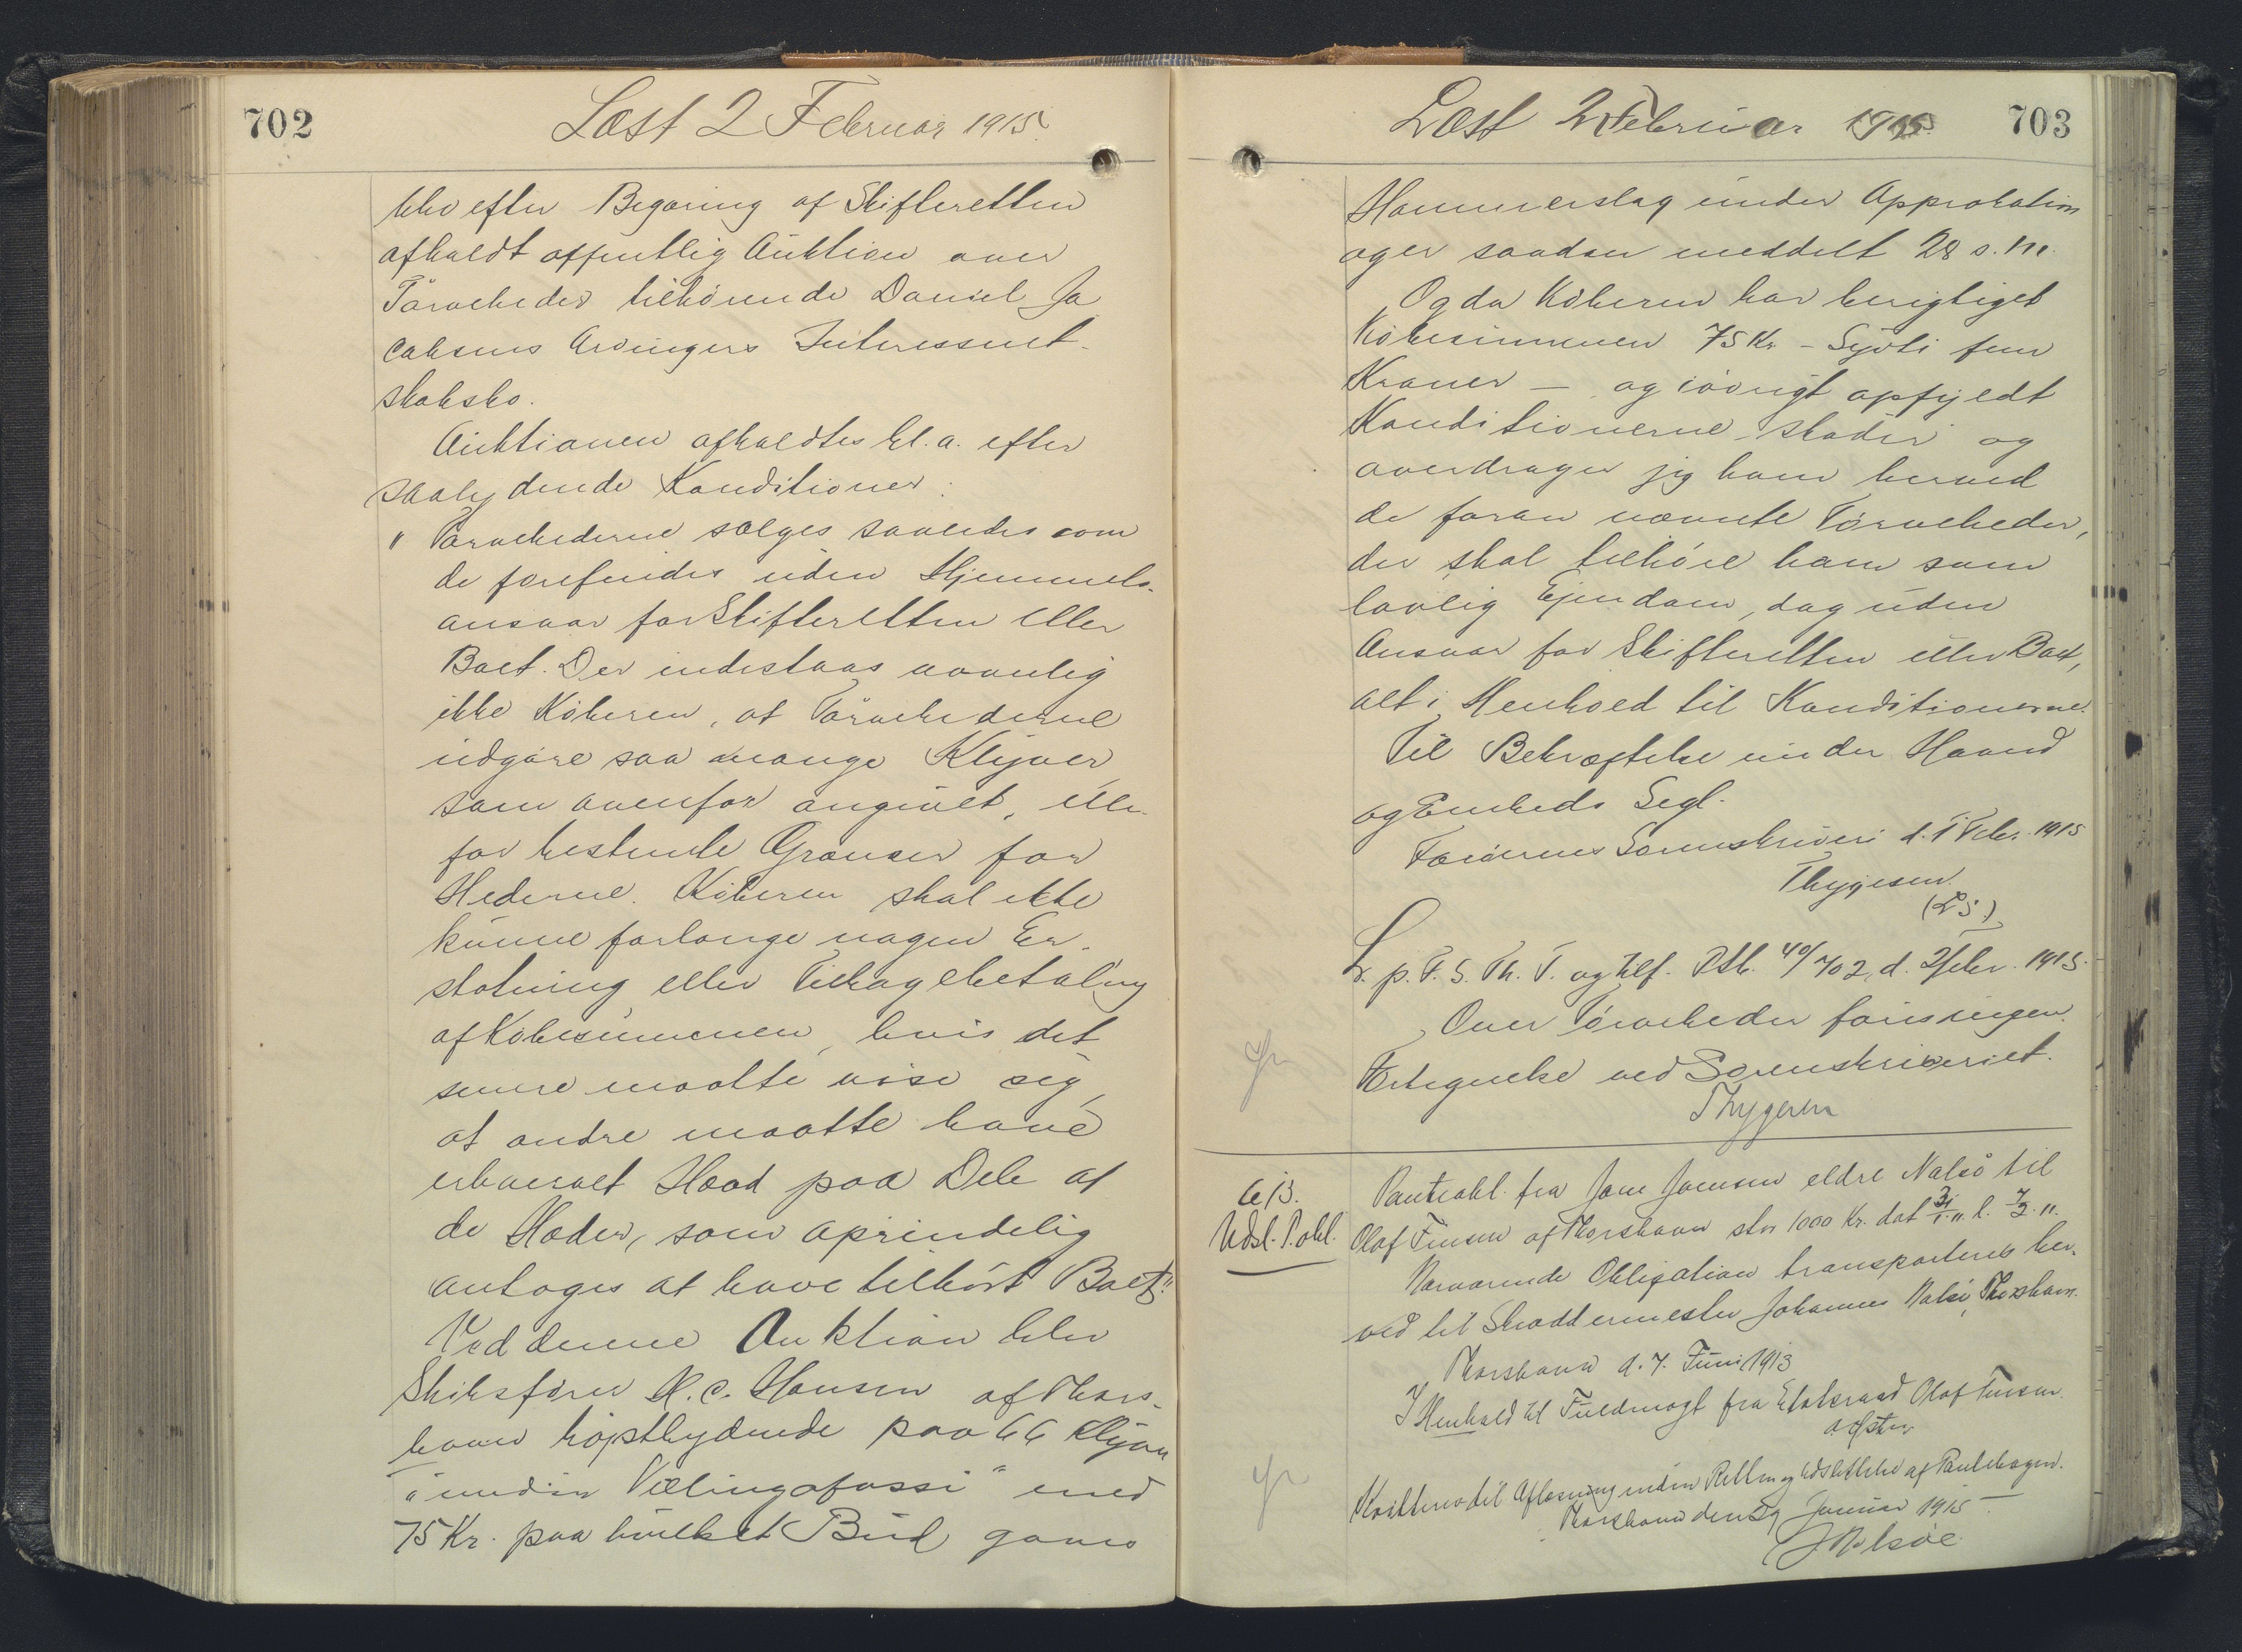 702
Læst 2 Februar 1915.
blev efter Begæring af Skifteretten
afholdt offentlig Auktion over
Tørveheder tilhørende Daniel Ja
cobsens Arvingers Interessent-
skabsbo.
Auktionen afholdtes bl.a. efter
saalydende Konditioner:
" Tørvehederne sælges saaledes som
de forefindes uden Hjemmels-
ansvar for Skifteretten eller
Boet. Der indestaas navnlig
ikke Køberen, at Tørvehederne
udgøre saa mange Klyver,
som ovenfor angivet, eller
for bestemte Grænser for
Hederne. Køberen skal ikke
kunne forlange nogen Er-
statning eller Tilbagebetaling
af Købesummen, hvis det
senere maatte vise sig,
at andre maatte have
erhvervet Hævd paa Dele af
de Heder, som oprindelig
antoges at have tilhørt Boet."
Ved denne Auktion blev
Skibsfører H.C. Hansen af Thors-
havn højstbydende paa 66 Klyver
"undir Villingafossi" med
75 Kr. paa hvilket Bud gaves
703
Læst 2 Februar 1915
Hammerslag under Approbation
og er saadan meddelt 28 s.M.
Og da Køberen har berigtiget
Købesummen 75 Kr. – Syvti fem
Kroner – og iøvrigt opfyldt
Konditionerne, skøder og
overdrager jeg ham herved
de foran nævnte Tørveheder,
der skal tilhøre ham som
lovlig Ejendom, dog uden
Ansvar for Skifteretten eller Boet,
alt i Henhold til Konditionerne.
Til Bekræftelse under Haand
og Embeds Segl.
Færøernes Sorenskriveri d. 1 Febr. 1915
Thygesen
(L.S.)
L. p. F. S. Th. T. og tilf. Ptb. 40/702, d. 2 Febr. 1915.
Over Tørveheder føres ingen
Fortegnelse ved Sorenskriveriet.
Thygesen
613.
Udsl. P. obl.
Panteobl. fra Jens Jensen eldre Nalsø til
Olaf Finsen af Thorshavn stor 1000 Kr. dat 3/1 11 l. 7/2 11.
Nærværende Obligation transporteres her-
ved til Skræddermester Johannes Nalsø, Thorshavn.
Thorshavn d. 7. Juni 1913
I Henhold til Fuldmagt fra Etatsraad Olaf Finsen.
Kvitteres til Aflæsning inden Retten og Udslettelse af Pantebogen.
Thorshavn den 29 Januar 1915 –
J Nolsøe